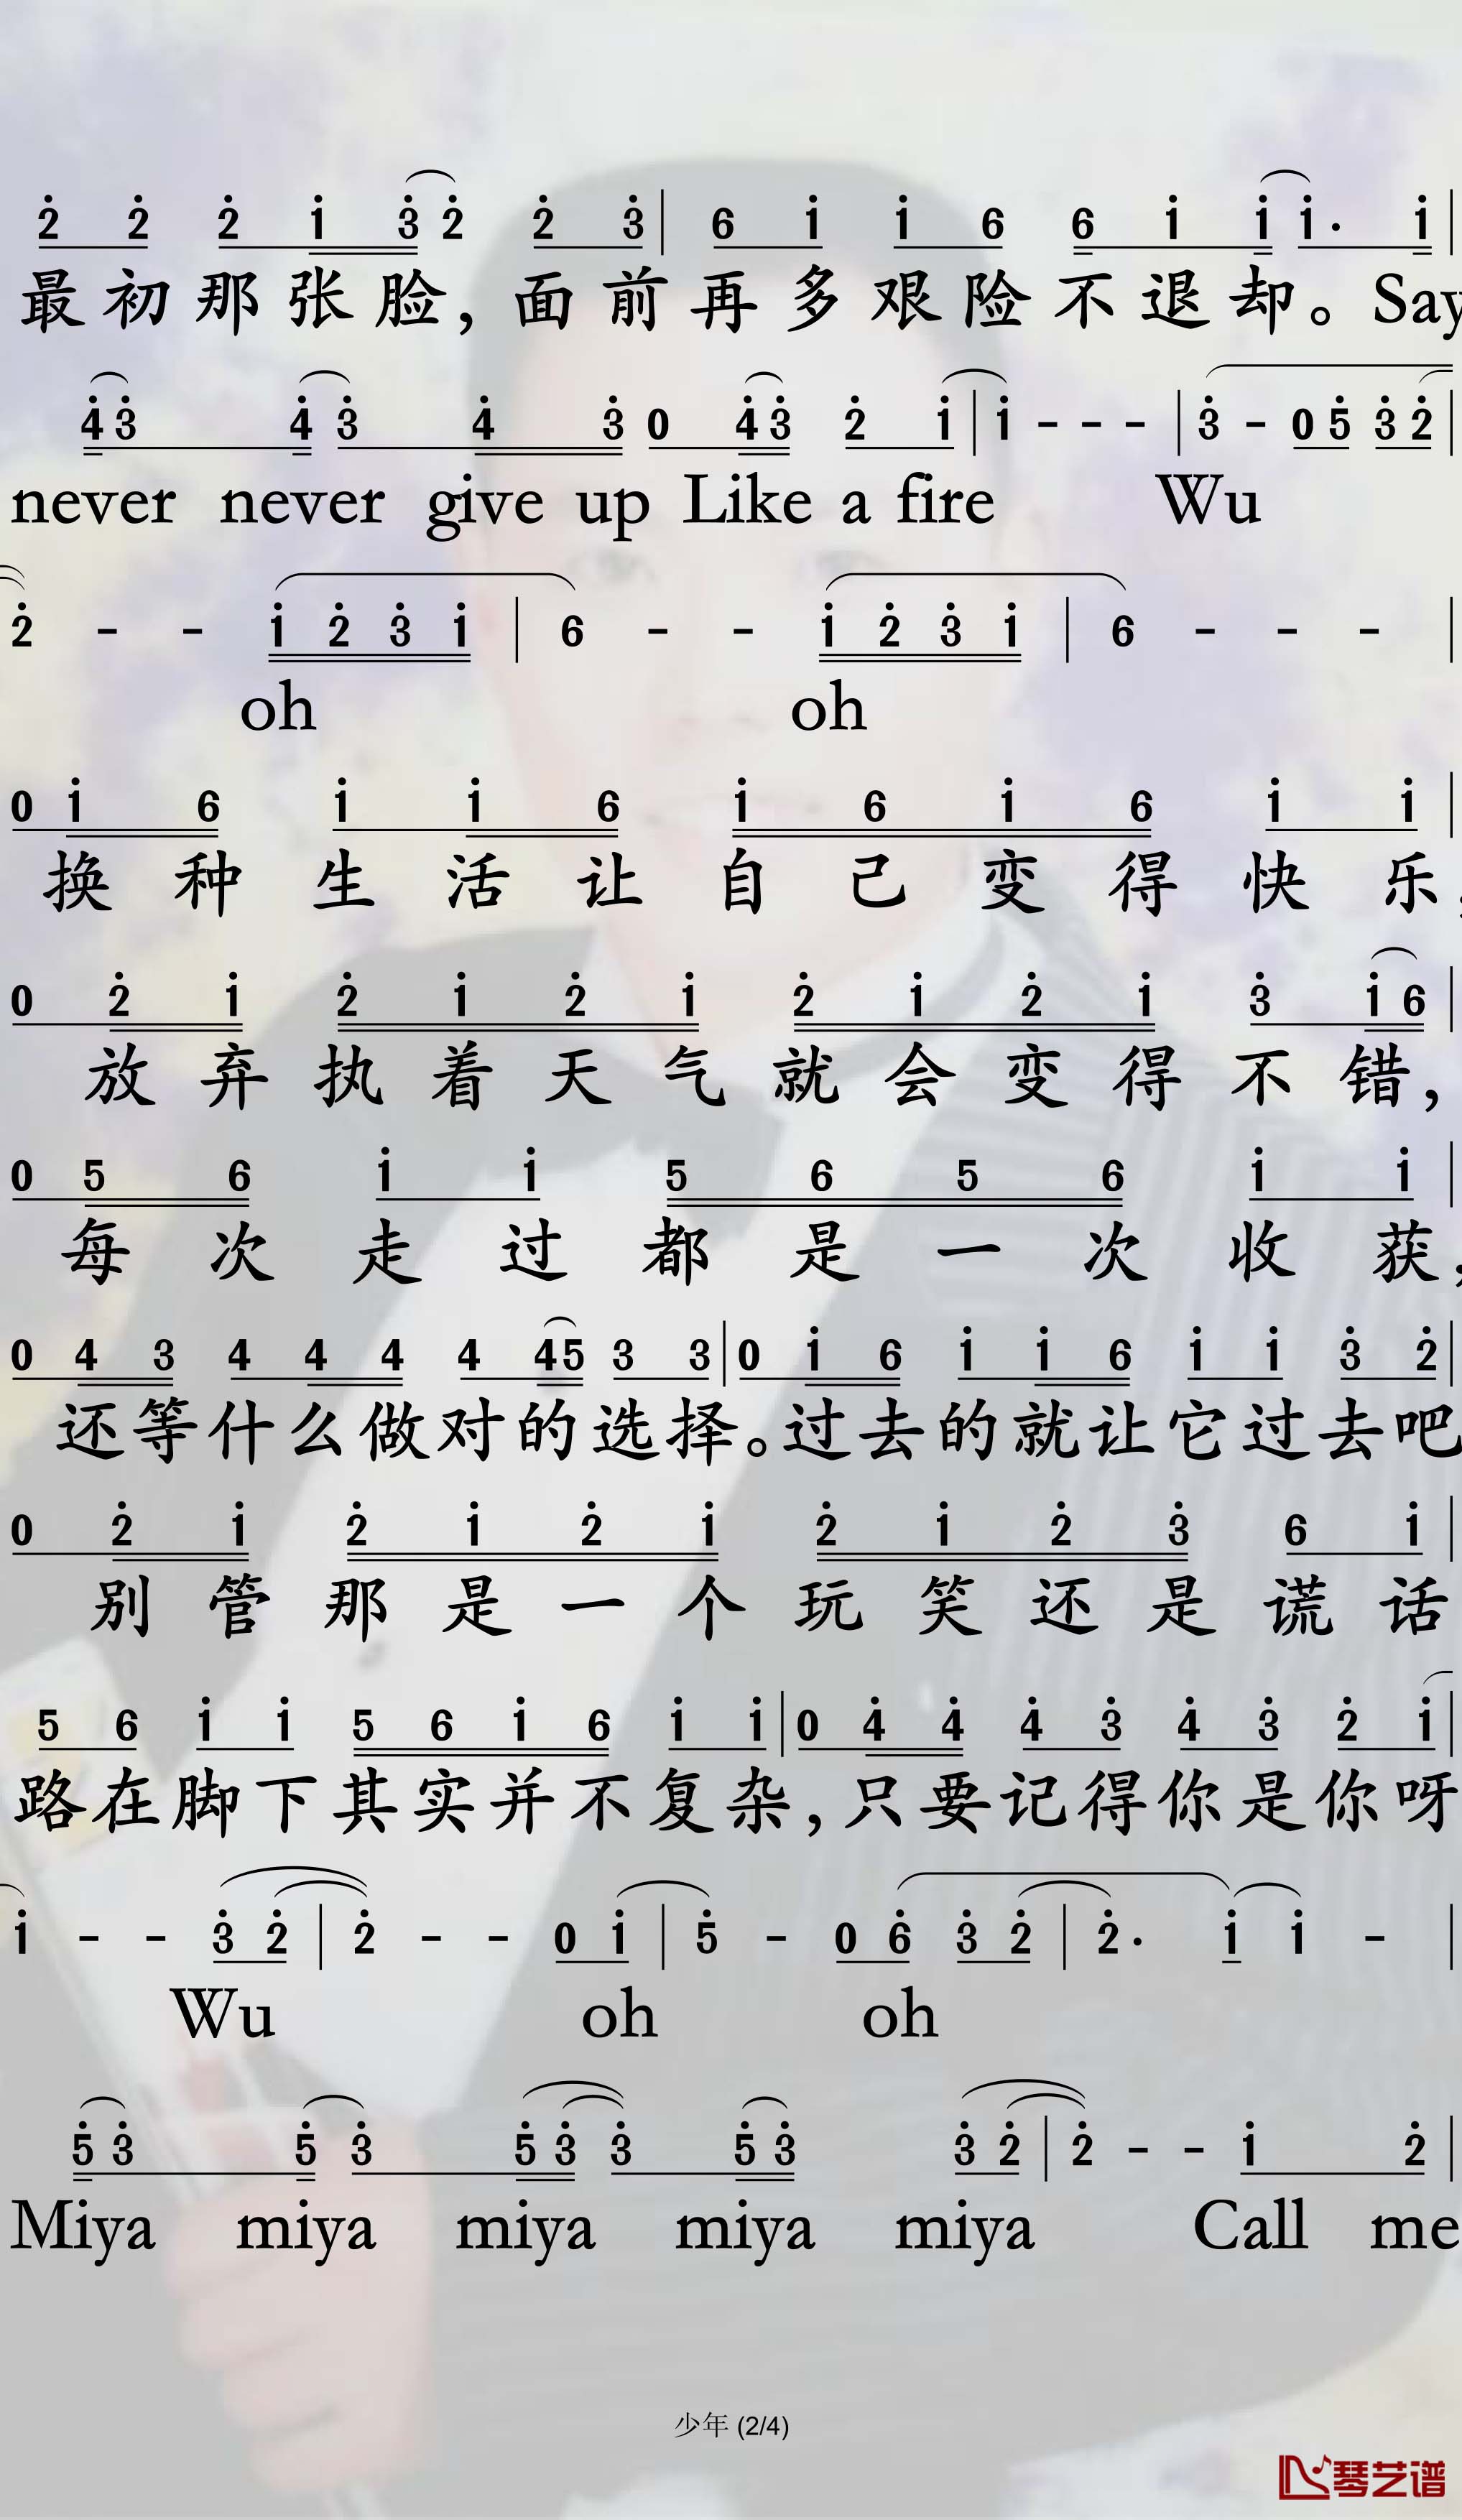 2̇ 2̇ 2̇ 1̇ 3̇ 2̇ 2̇ 3̇ | 6 1̇ 1̇ 6 6 1̇ 1̇ 1̇· 1̇ |
最初那张脸，面前再多艰险不退却。Say
4̇ 3̇ 4̇ 3̇ 4̇ 3̇ 0 4̇ 3̇ 2̇ 1̇ | 1̇ - - - | 3̇ - 0 5̇ 3̇ 2̇ |
never never give up Like a fire Wu
2̇ - - 1̇ 2̇ 3̇ 1̇ | 6 - - 1̇ 2̇ 3̇ 1̇ | 6 - - - |
oh oh
0 1̇ 6 1̇ 1̇ 6 1̇ 6 1̇ 6 1̇ 1̇ |
换种生活让自己变得快乐，
0 2̇ 1̇ 2̇ 1̇ 2̇ 1̇ 2̇ 1̇ 2̇ 1̇ 3̇ 1̇ 6 |
放弃执着天气就会变得不错，
0 5 6 1̇ 1̇ 5 6 5 6 1̇ 1̇ |
每次走过都是一次收获，
0 4 3 4 4 4 4 4 5 3 3 | 0 1̇ 6 1̇ 1̇ 6 1̇ 1̇ 3̇ 2̇ |
还等什么做对的选择。过去的就让它过去吧
0 2̇ 1̇ 2̇ 1̇ 2̇ 1̇ 2̇ 1̇ 2̇ 3̇ 6 1̇ |
别管那是一个玩笑还是谎话
5 6 1̇ 1̇ 5 6 1̇ 6 1̇ 1̇ | 0 4̇ 4̇ 4̇ 3̇ 4̇ 3̇ 2̇ 1̇ |
路在脚下其实并不复杂，只要记得你是你呀
1̇ - - 3̇ 2̇ | 2̇ - - 0 1̇ | 5̇ - 0 6̇ 3̇ 2̇ | 2̇· 1̇ 1̇ - |
Wu oh oh
5̇ 3̇ 5̇ 3̇ 5̇ 3̇ 3̇ 5̇ 3̇ 3̇ 2̇ | 2̇ - - 1̇ 2̇ |
Miya miya miya miya miya Call me
少年 (2/4)
琴艺谱